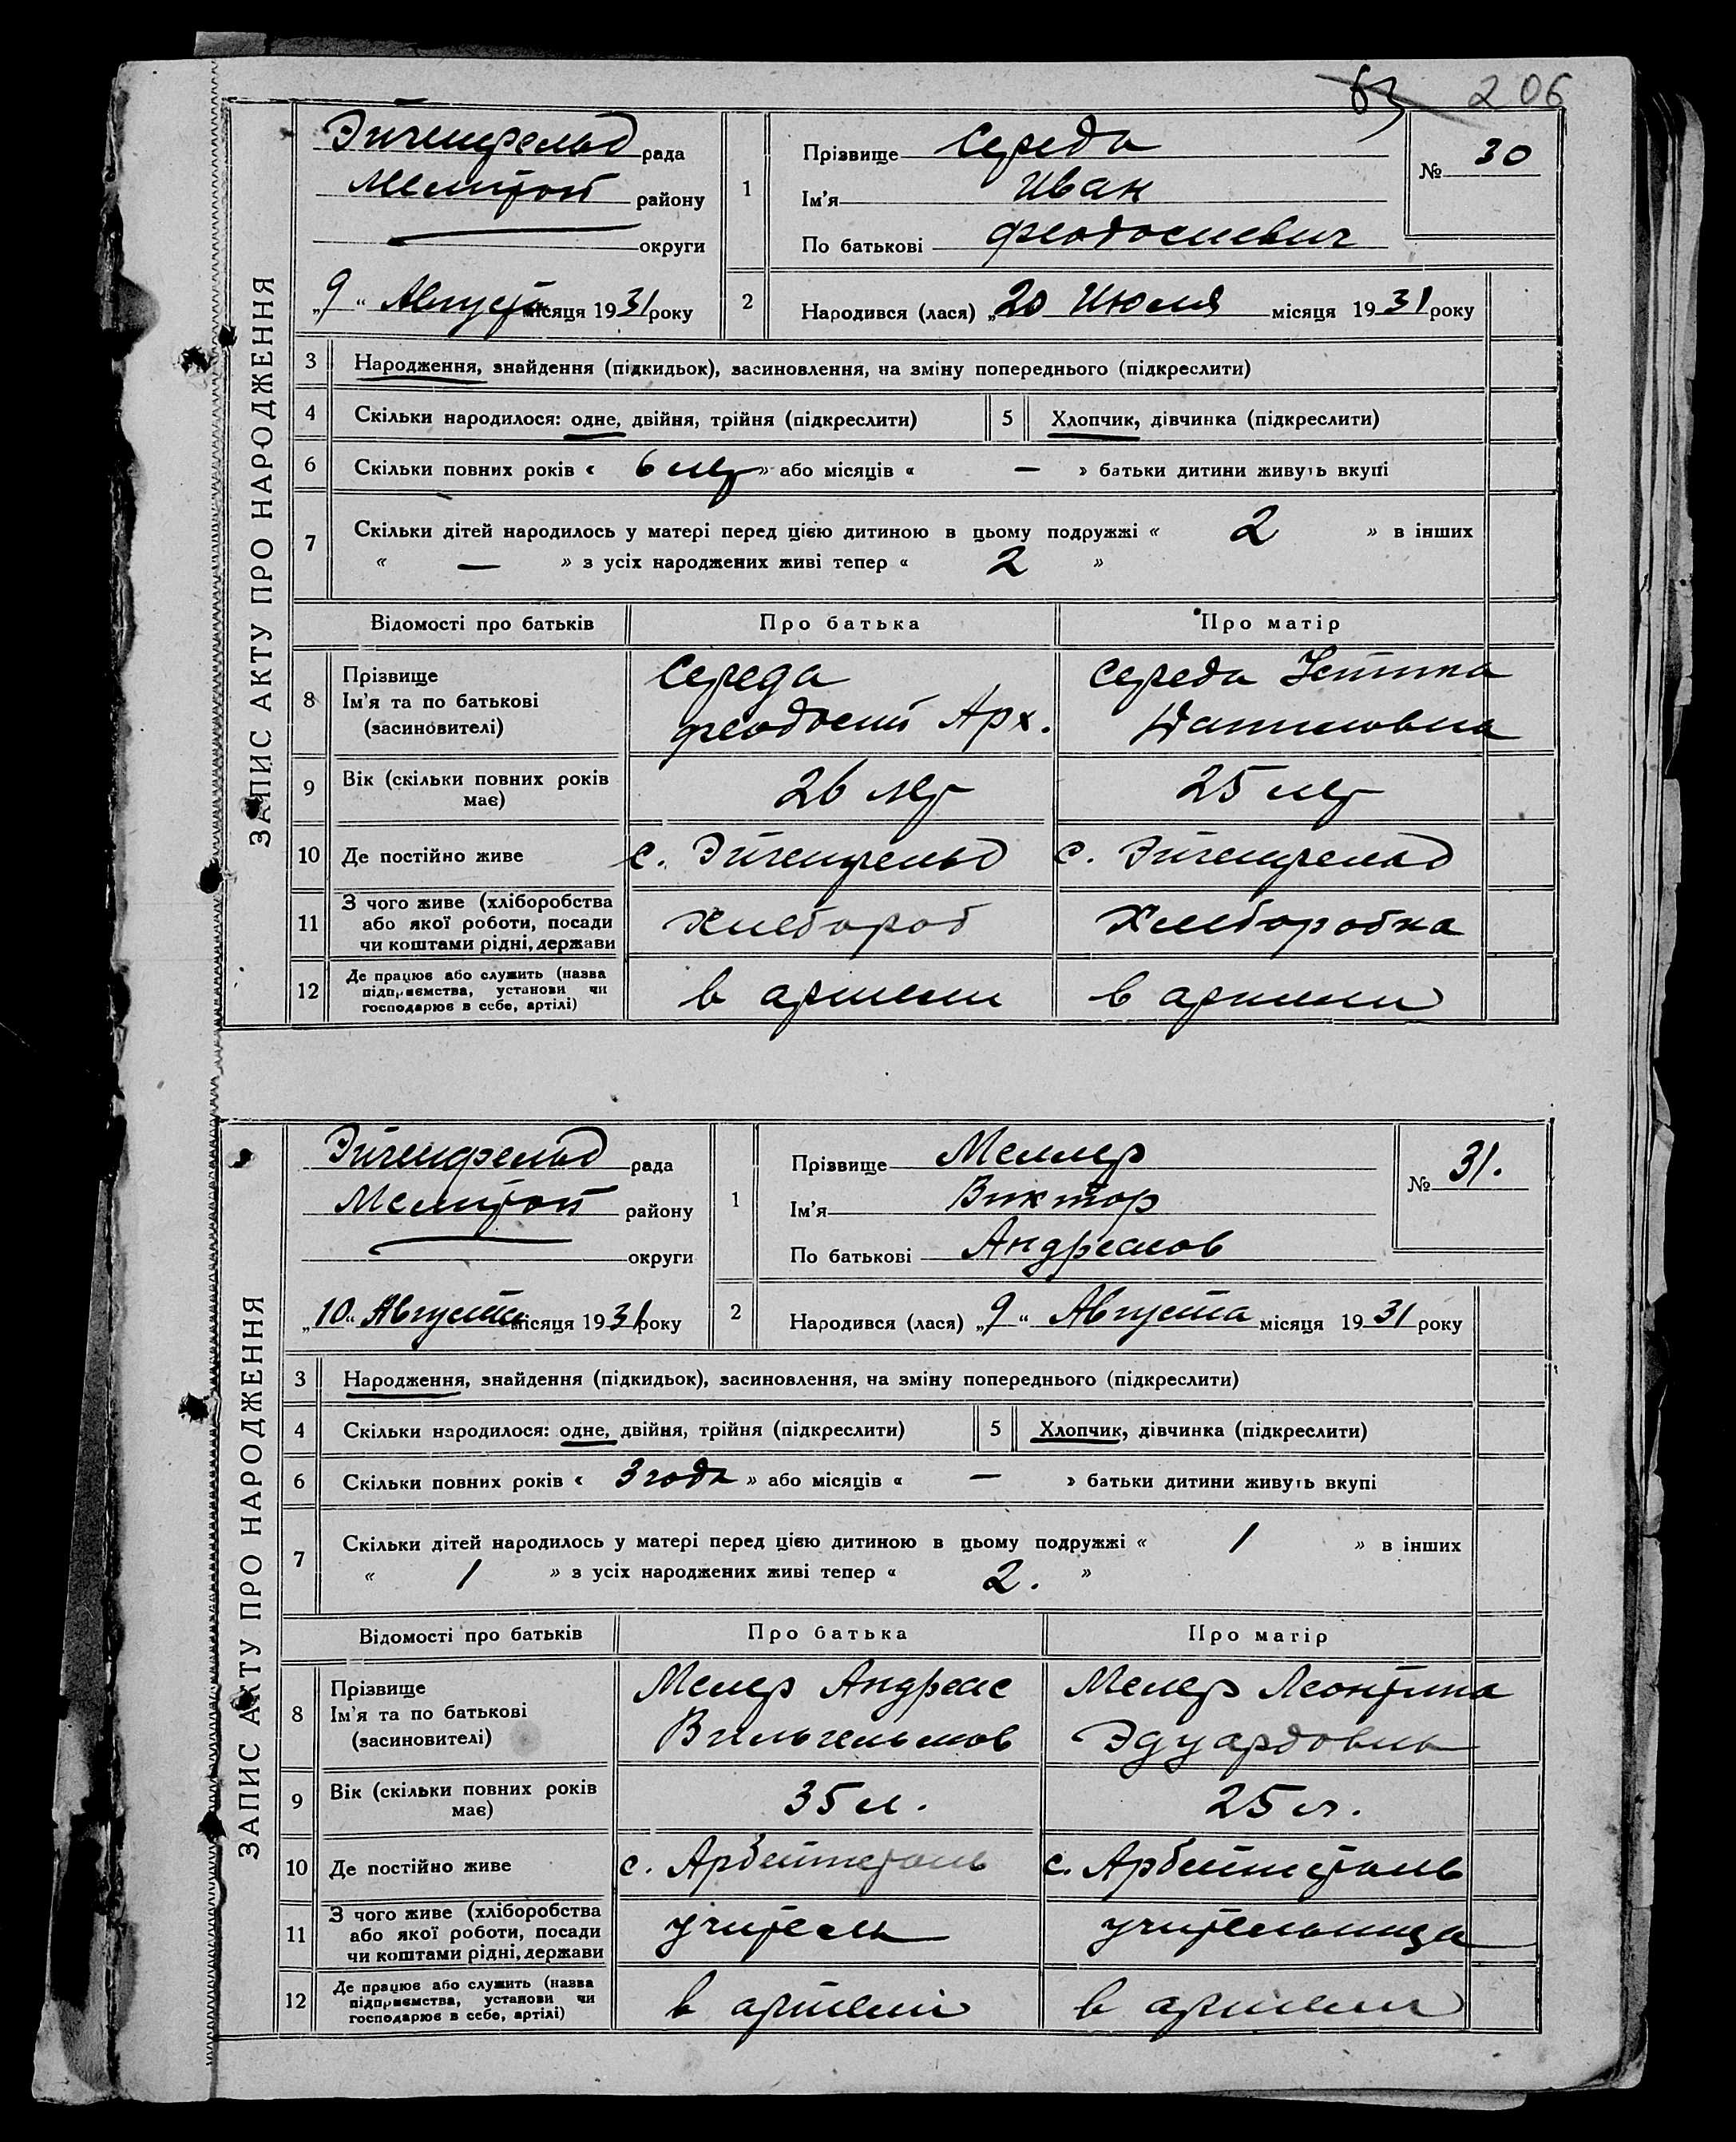 63 206
ЗАПИС АКТУ ПРО НАРОДЖЕННЯ
Эйгенфельд рада
Мелитоп района району
округи
„9“ Августа місяця 1931 року
1 Прізвище Середа
Ім'я Иван
По батькові Феодосиевич
№ 30
2 Народився (лася) „20 Июля місяця 1931 року
3 Народження, знайдення (підкидьок), засиновлення, на зміну попереднього (підкреслити)
4 Скільки народилося: одне, двійня, трійня (підкреслити) 5 Хлопчик, дівчинка (підкреслити)
6 Скільки повних років « 6 лет » або місяців « — » батьки дитини живуть вкупі
7 Скільки дітей народилось у матері перед цією дитиною в цьому подружжі « 2 » в інших
« — » з усіх народжених живі тепер « 2 »
Відомості про батьків Про батька Про матір
8 Прізвище Ім'я та по батькові (засиновителі)
Середа Феодосий Арх.
Середа Устина Даниловна
9 Вік (скільки повних років має) 26 лет 25 лет
10 Де постійно живе с. Эйгенфельд с. Эйгенфельд
11 З чого живе (хліборобства або якої роботи, посади чи коштами рідні, держави Хлебороб Хлеборобка
12 Де працює або служить (назва підприємства, установи чи господарює в себе, артілі) в артели в артели
ЗАПИС АКТУ ПРО НАРОДЖЕННЯ
Эйгенфельд рада
Мелитоп району
округи
„10“ Августа місяця 1931 року
1 Прізвище Меллер
Ім'я Виктор
По батькові Андреасов
№ 31.
2 Народився (лася) „9“ Августа місяця 1931 року
3 Народження, знайдення (підкидьок), засиновлення, на зміну попереднього (підкреслити)
4 Скільки народилося: одне, двійня, трійня (підкреслити) 5 Хлопчик, дівчинка (підкреслити)
6 Скільки повних років « 3 года » або місяців « — » батьки дитини живуть вкупі
7 Скільки дітей народилось у матері перед цією дитиною в цьому подружжі « 1 » в інших
« 1 » з усіх народжених живі тепер « 2. »
Відомості про батьків Про батька Про матір
8 Прізвище Ім'я та по батькові (засиновителі)
Мелер Андреас Вильгельмов
Мелер Леонтина Эдуардовна
9 Вік (скільки повних років має) 35 л. 25 л.
10 Де постійно живе с. Арбейтсталь с. Арбейтсталь
11 З чого живе (хліборобства або якої роботи, посади чи коштами рідні, держави учитель учительница
12 Де працює або служить (назва підприємства, установи чи господарює в себе, артілі) в артели в артели